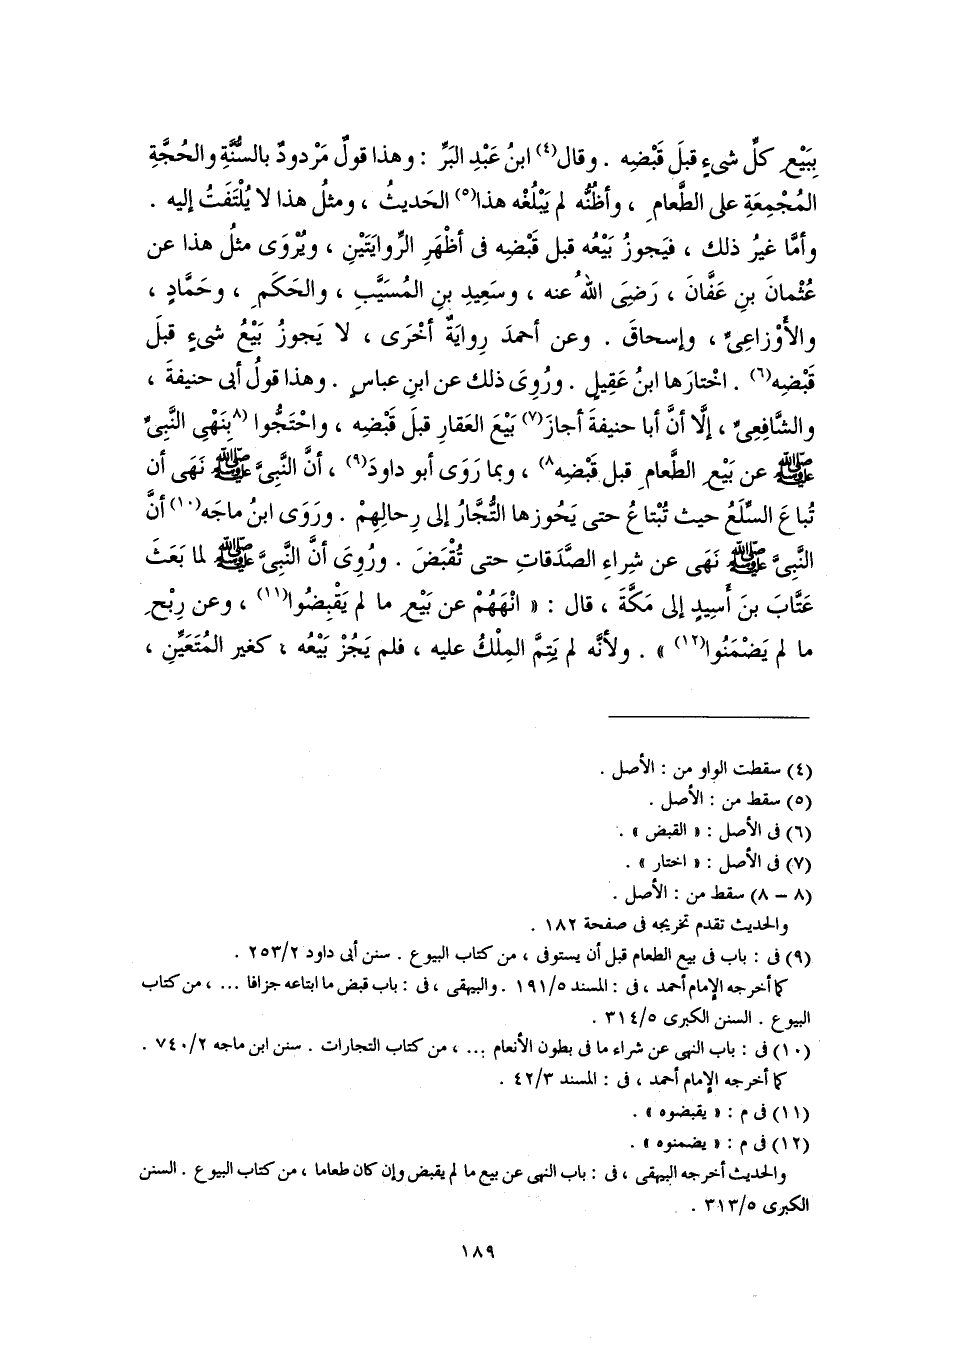 بِبَيْعِ كلِّ شىءٍ قبلَ قَبْضِه . وقال(٤) ابنُ عَبْدِ البَرِّ : وهذا قولٌ مَرْدودٌ بالسُّنَّةِ والحُجَّةِ
المُجْمِعَةِ على الطَّعامِ ، وأظُنُّه لم يَبْلُغْه هذا(٥) الحَديثُ ، ومثلُ هذا لا يُلْتَفَتُ إليه .
وأمَّا غيرُ ذلك ، فيَجوزُ بَيْعُه قبل قَبْضِه فى أظْهَرِ الرِّوايَتَيْنِ ، ويُرْوَى مثلُ هذا عن
عُثْمانَ بنِ عَفَّانَ ، رَضِىَ اللهُ عنه ، وسَعِيدِ بنِ المُسَيَّبِ ، والحَكَمِ ، وحَمَّادٍ ،
والأَوْزاعِىِّ ، وإسحاقَ . وعن أحمدَ رِوايَةٌ أخْرَى ، لا يَجوزُ بَيْعُ شىءٍ قبلَ
قَبْضِه(٦) . اخْتارَها ابنُ عَقِيلٍ . ورُوِىَ ذلك عن ابنِ عباسٍ . وهذا قولُ أبى حنيفةَ ،
والشَّافِعِىِّ ، إلَّا أنَّ أبا حنيفةَ أجازَ(٧) بَيْعَ العَقارِ قبلَ قَبْضِه ، واحْتَجُّوا (٨بِنَهْىِ النَّبِىِّ
ﷺ عن بَيْعِ الطَّعامِ قبل قَبْضِه٨) ، وبما رَوَى أبو داودَ(٩) ، أنَّ النَّبِىَّ ﷺ نَهَى أن
تُباعَ السِّلَعُ حيث تُبْتاعُ حتى يَحُوزها التُّجَّارُ إلى رِحالِهِمْ . ورَوَى ابنُ ماجَه(١٠) أنَّ
النَّبِىَّ ﷺ نَهَى عن شِراءِ الصَّدَقاتِ حتى تُقْبَضَ . ورُوِىَ أنَّ النَّبِىَّ ﷺ لما بَعَثَ
عَتَّابَ بنَ أَسِيدٍ إلى مَكَّةَ ، قال : « انْهَهُمْ عن بَيْعِ ما لم يَقْبِضُوا(١١) ، وعن رِبْحِ
ما لم يَضْمَنُوا(١٢) » . ولأنَّه لم يَتِمَّ المِلْكُ عليه ، فلم يَجُزْ بَيْعُه ؛ كغير المُتَعَيِّنِ ،
(٤) سقطت الواو من : الأصل .
(٥) سقط من : الأصل .
(٦) فى الأصل : « القبض » .
(٧) فى الأصل : « اختار » .
(٨ – ٨) سقط من : الأصل .
والحديث تقدم تخريجه فى صفحة ١٨٢ .
(٩) فى : باب فى بيع الطعام قبل أن يستوفى ، من كتاب البيوع . سنن أبى داود ٢/ ٢٥٣ .
كما أخرجه الإمام أحمد ، فى : المسند ٥/ ١٩١ . والبيهقى ، فى : باب قبض ما ابتاعه جزافا ... ، من كتاب
البيوع . السنن الكبرى ٥/ ٣١٤ .
(١٠) فى : باب النهى عن شراء ما فى بطون الأنعام ... ، من كتاب التجارات . سنن ابن ماجه ٢/ ٧٤٠ .
كما أخرجه الإمام أحمد ، فى : المسند ٣/ ٤٢ .
(١١) فى م : « يقبضوه » .
(١٢) فى م : « يضمنوه » .
والحديث أخرجه البيهقى ، فى : باب النهى عن بيع ما لم يقبض وإن كان طعاما ، من كتاب البيوع . السنن
الكبرى ٥/ ٣١٣ .
١٨٩